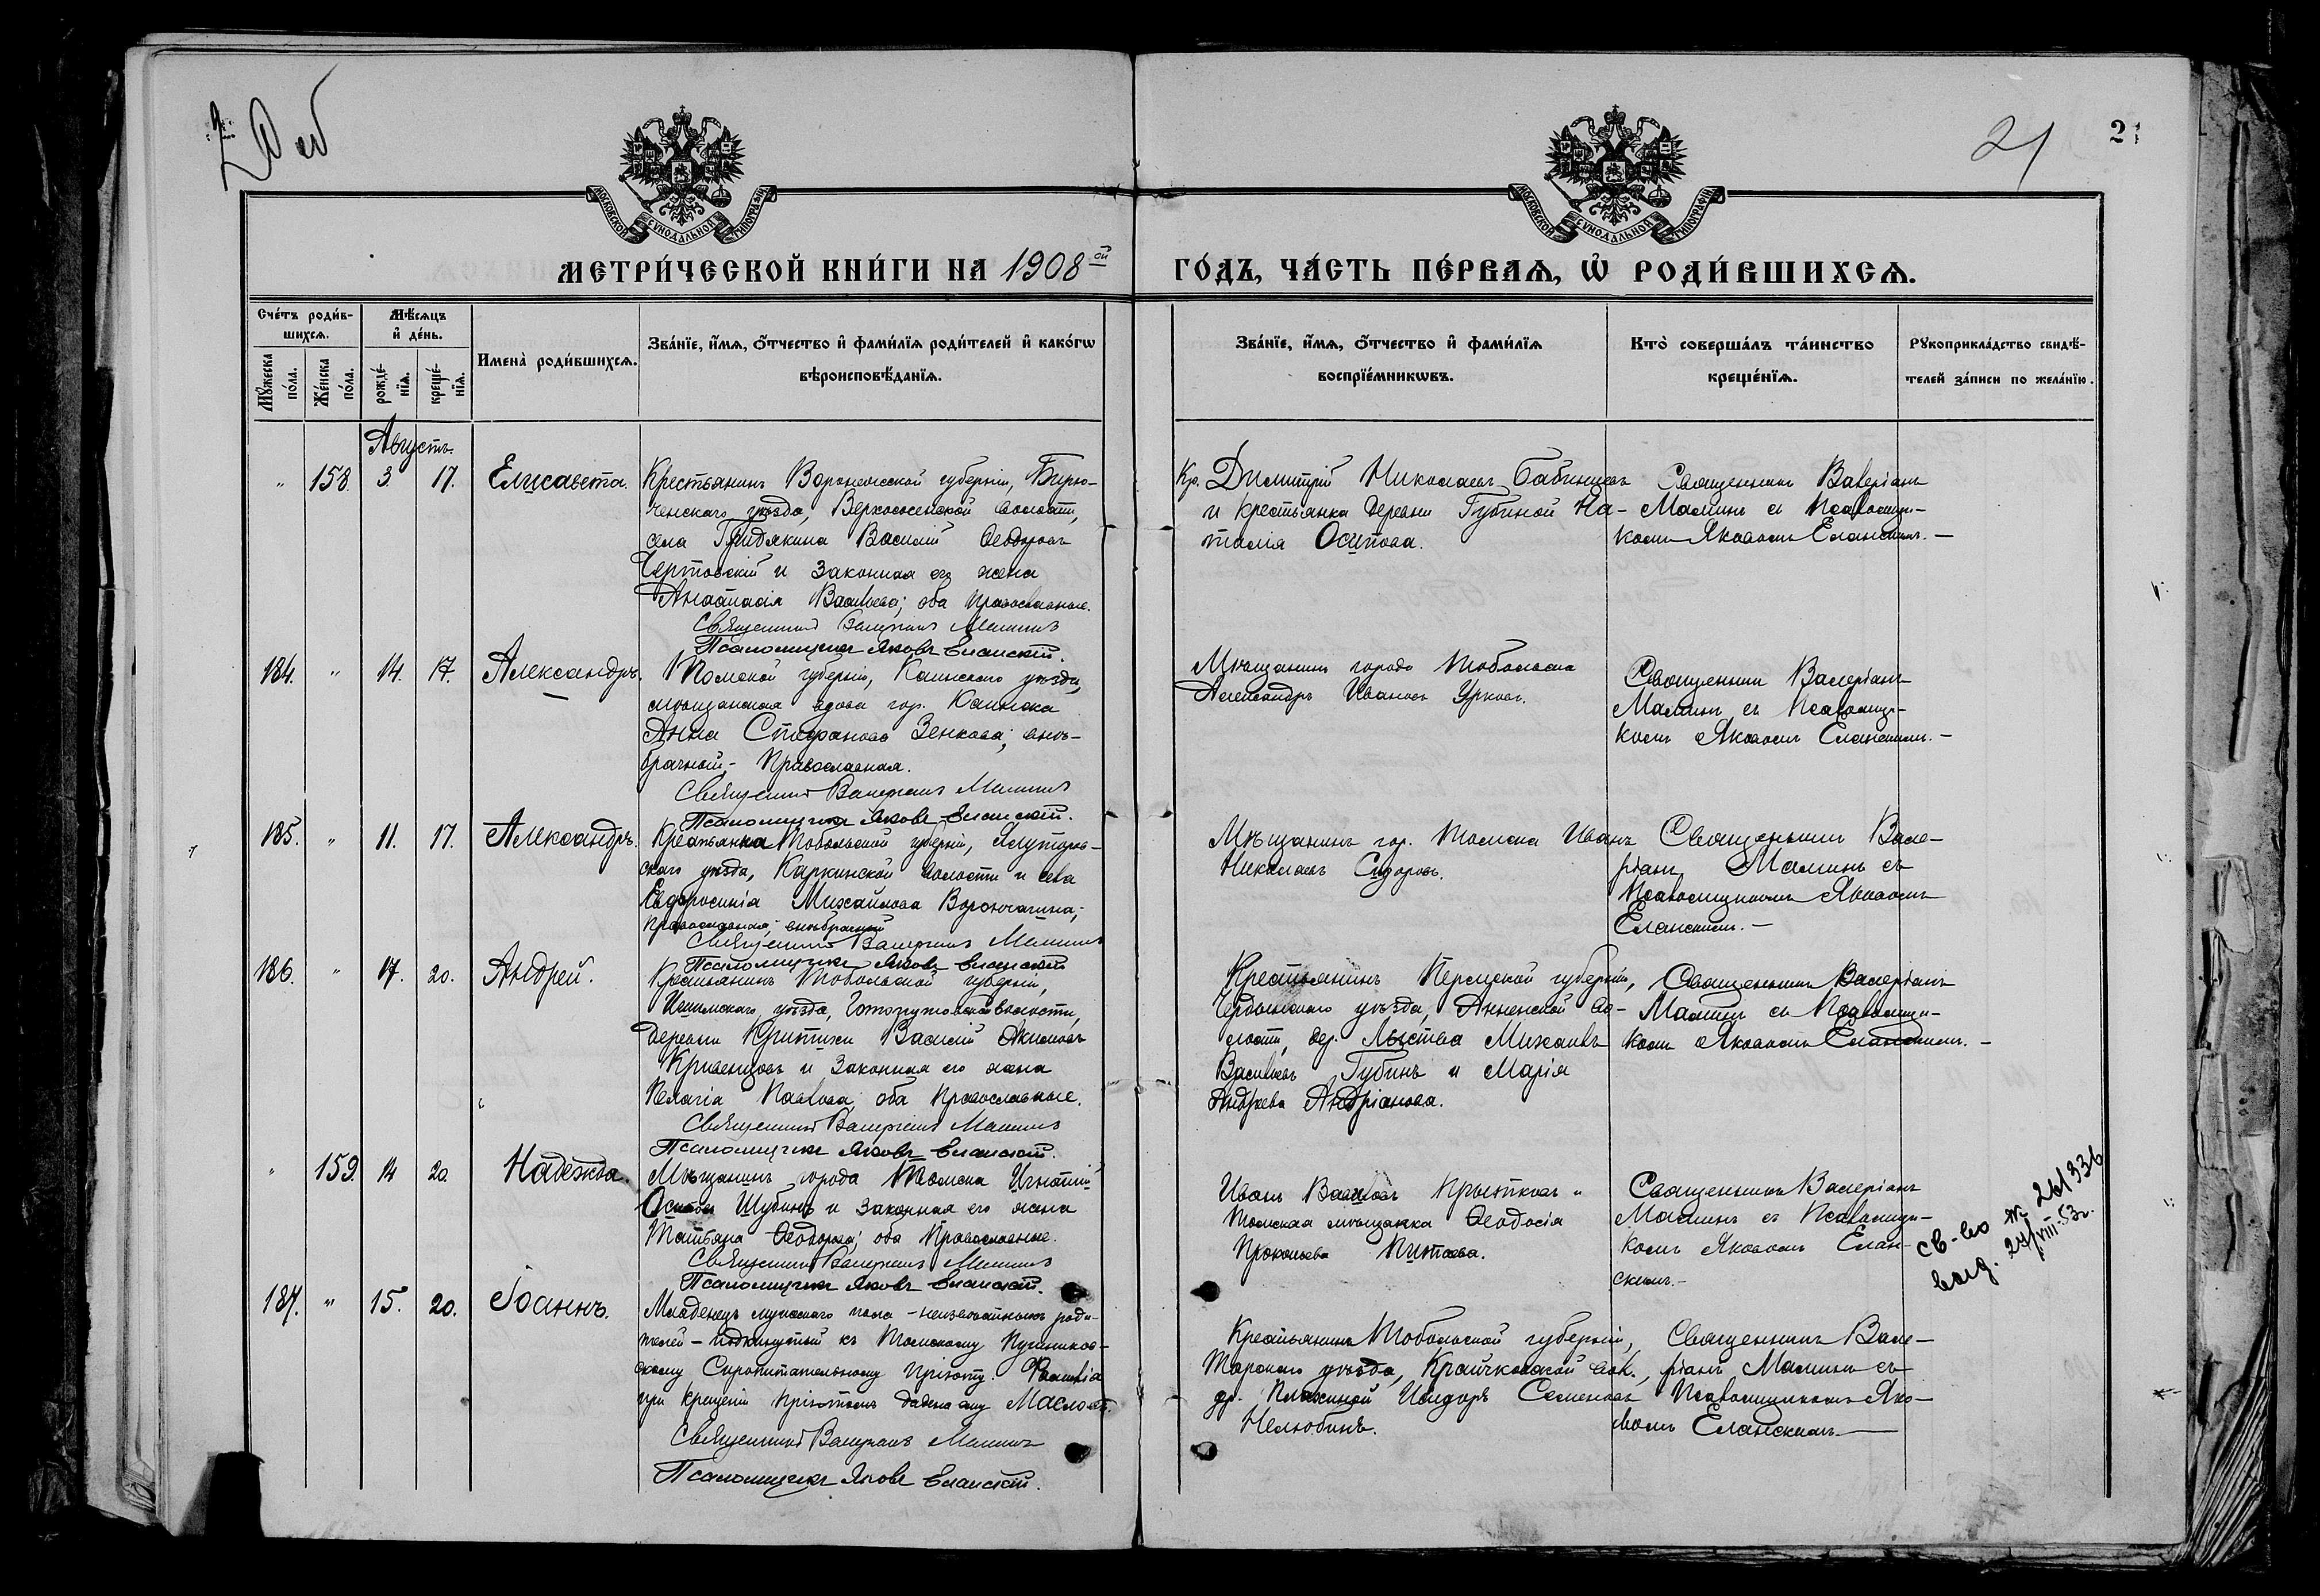 21
21
МЕТРИ́ЧЕСКОЙ КНИ́ГИ НА 1908ой ГО́ДЪ, ЧА́СТЬ ПЕ́РВАЯ, Ѽ РОДИ́ВШИХСЯ.
Сче́тъ роди́в-
шихся.
Мѹжеска по́ла.
Же́нска по́ла.
Мѣ́сяцъ
и҆ де́нь.
рожде́-
нїѧ.
креще́-
нїѧ.
Имена̀ роди́вшихся.
Зва́нїе, и҆́мѧ, ѻ҆́тчество и҆ фами́лїѧ роди́телей и҆ како́гѡ
вѣроисповѣ́данїѧ.
Зва́нїе, и҆́мѧ, ѻ҆́тчество и҆ фами́лїѧ
воспрїе́мникѡвъ.
Кто̀ соверша́лъ та́инство
креще́нїѧ.
Рѹкоприкла́дство свидѣ́-
телей за́писи по жела́нїю.
Августъ.
" 158. 3 17. Елисавета.
Крестьянинъ Воронежской губерніи, Бирю-
ченскаго уѣзда, Верхососенской волости,
села Гридякина Василій Ѳеодоровъ
Чертовскій и законная его жена
Анастасія Васильева; оба православные.
Священникъ Валеріанъ Маминъ
Псаломщикъ Яковъ Еланскій.
Кр. Димитрій Николаевъ Бабинцевъ
и крестьянка деревни Губиной На-
талія Осипова.
Священникъ Валеріанъ
Маминъ съ Псаломщи-
комъ Яковомъ Еланскимъ. —
184. " 14. 17. Александръ.
Томской губерніи, Каинскаго уѣзда,
мѣщанская вдова гор. Каинска
Анна Стефанова Зенкова; внѣ-
брачный, – Православная.
Священникъ Валеріанъ Маминъ
Псаломщикъ Яковъ Еланскій.
Мѣщанинъ города Тобольска
Александръ Ивановъ Урковъ.
Священникъ Валеріанъ
Маминъ съ Псаломщи-
комъ Яковомъ Еланскимъ. –
185. " 11. 17. Александръ.
Крестьянка Тобольской губерніи, Ялуторов-
скаго уѣзда, Каркинской волости и села
Евфросинія Михайлова Ворончагина;
православная; внѣбрачный
Священникъ Валеріанъ Маминъ
Псаломщикъ Яковъ Еланскій
Мѣщанинъ гор. Томска Иванъ
Николаевъ Сидоровъ.
Священникъ Вале-
ріанъ Маминъ съ
Псаломщикомъ Яковомъ
Еланскимъ. –
186. " 17. 20. Андрей.
Крестьянинъ Тобольской губерніи,
Ишимскаго уѣзда, Готопутовской волости,
деревни Василій Акимовъ
Кривенцовъ и законная его жена
Пелагія Павлова; оба Православные.
Священникъ Валеріанъ Маминъ
Псаломщикъ Яковъ Еланскій.
Крестьянинъ Пермской губерніи,
Чердынскаго уѣзда, Анненской во-
лости, дер. Лыства Михаилъ
Васильевъ Губинъ и Марія
Андреева Андріанова.
Священникъ Валеріанъ
Маминъ съ Псаломщи-
комъ Яковомъ Еланскимъ. –
" 159. 14 20. Надежда.
Мѣщанинъ города Томска Игнатій
Осиповъ Шубинъ и законная его жена
Татьяна Ѳеодорова; оба Православные.
Священникъ Валеріанъ Маминъ
Псаломщикъ Яковъ Еланскій.
Иванъ Васильевъ Прытковъ и
Томская мѣщанка Ѳеодосія
Прокопьева Питаева.
Священникъ Валеріанъ
Маминъ съ Псаломщи-
комъ Яковомъ Елан-
скимъ. –
св-во № 261336
выд. 27/VIII-53г.
187. " 15. 20. Іоаннъ.
Младенецъ мужскаго пола – неизвѣстныхъ роди-
телей – подкинутый къ Томскому Пушников-
скому Сиропитательному пріюту. Фамилія
при крещеніи пріютомъ дадена ему Масловъ.
Священникъ Валеріанъ Маминъ
Псаломщикъ Яковъ Еланскій.
Крестьянинъ Тобольской губерніи,
Тарскаго уѣзда, Крайчковской вол.,
др. Исидоръ Семеновъ
Нелюбинъ.
Священникъ Вале-
ріанъ Маминъ съ
Псаломщикомъ Яко-
вомъ Еланскимъ. —